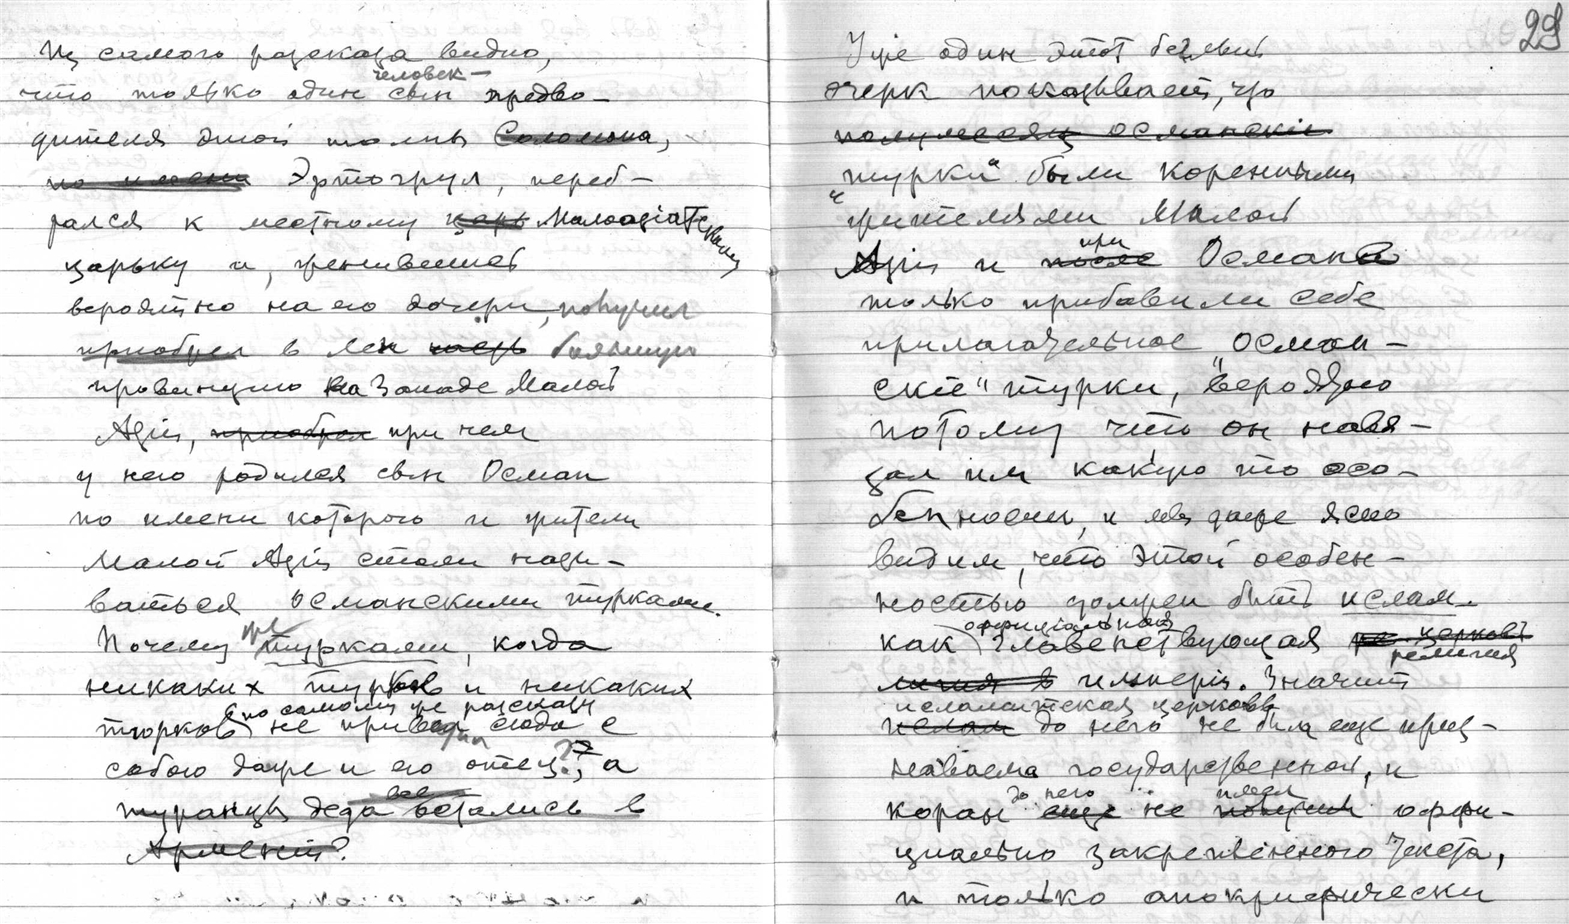 Из самого рассказа видно,
что только один человек – сын предво-
дителя этой толпы Соломона,
по имени Эртогрул, переб-
рался к местному царь Малоазіатскому
царьку и, женившись
вероятно на его дочери, получил
приобрел в лен часть большую
провинцию на Западе Малой
Азіи, приобрел при чем
у него родился сын Осман
по имени которого и жители
Малой Азіи стали назы-
ваться османскими турками.
Почему же турками, когда
никаких турков и никаких
тюрков по самому же рассказу не приводил сюда с
собою даже и его отец??, а
туранцы деда все остались в
Арменіи?
29
Уже один этот беглый
очерк показывает, что
полумесяц османскіи
"турки" были коренными
жителями Малой
Азіи и после при Османе
только прибавили себе
прилагательное "осман-
скіе" турки, вероятно
потому что он навя-
зал им какую то осо-
бенность, и мы даже ясно
видим, что этой особен-
ностью должен быть ислам
как оффиціальная главенствующая церковь религия
лигия в имперіи. Значит
ислам исламитская церковь до него не была еще приз-
наваема государственной, и
коран еще до него не получил имел оффи-
циально закрепленного текста,
и только апокрифически